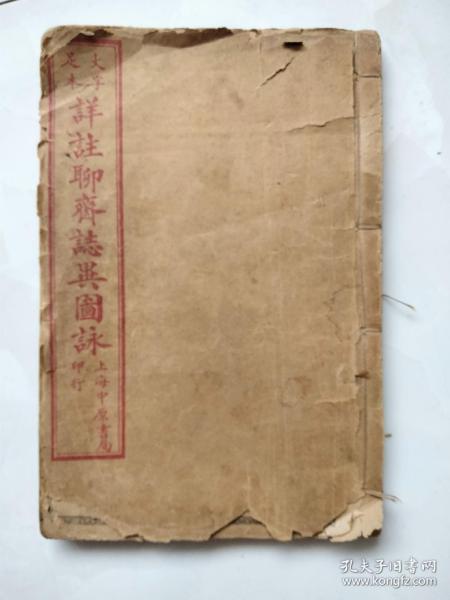 大字
足本
詳註聊齋誌異圖詠
上海中原書局
印行
孔夫子旧书网
www.kongfz.com